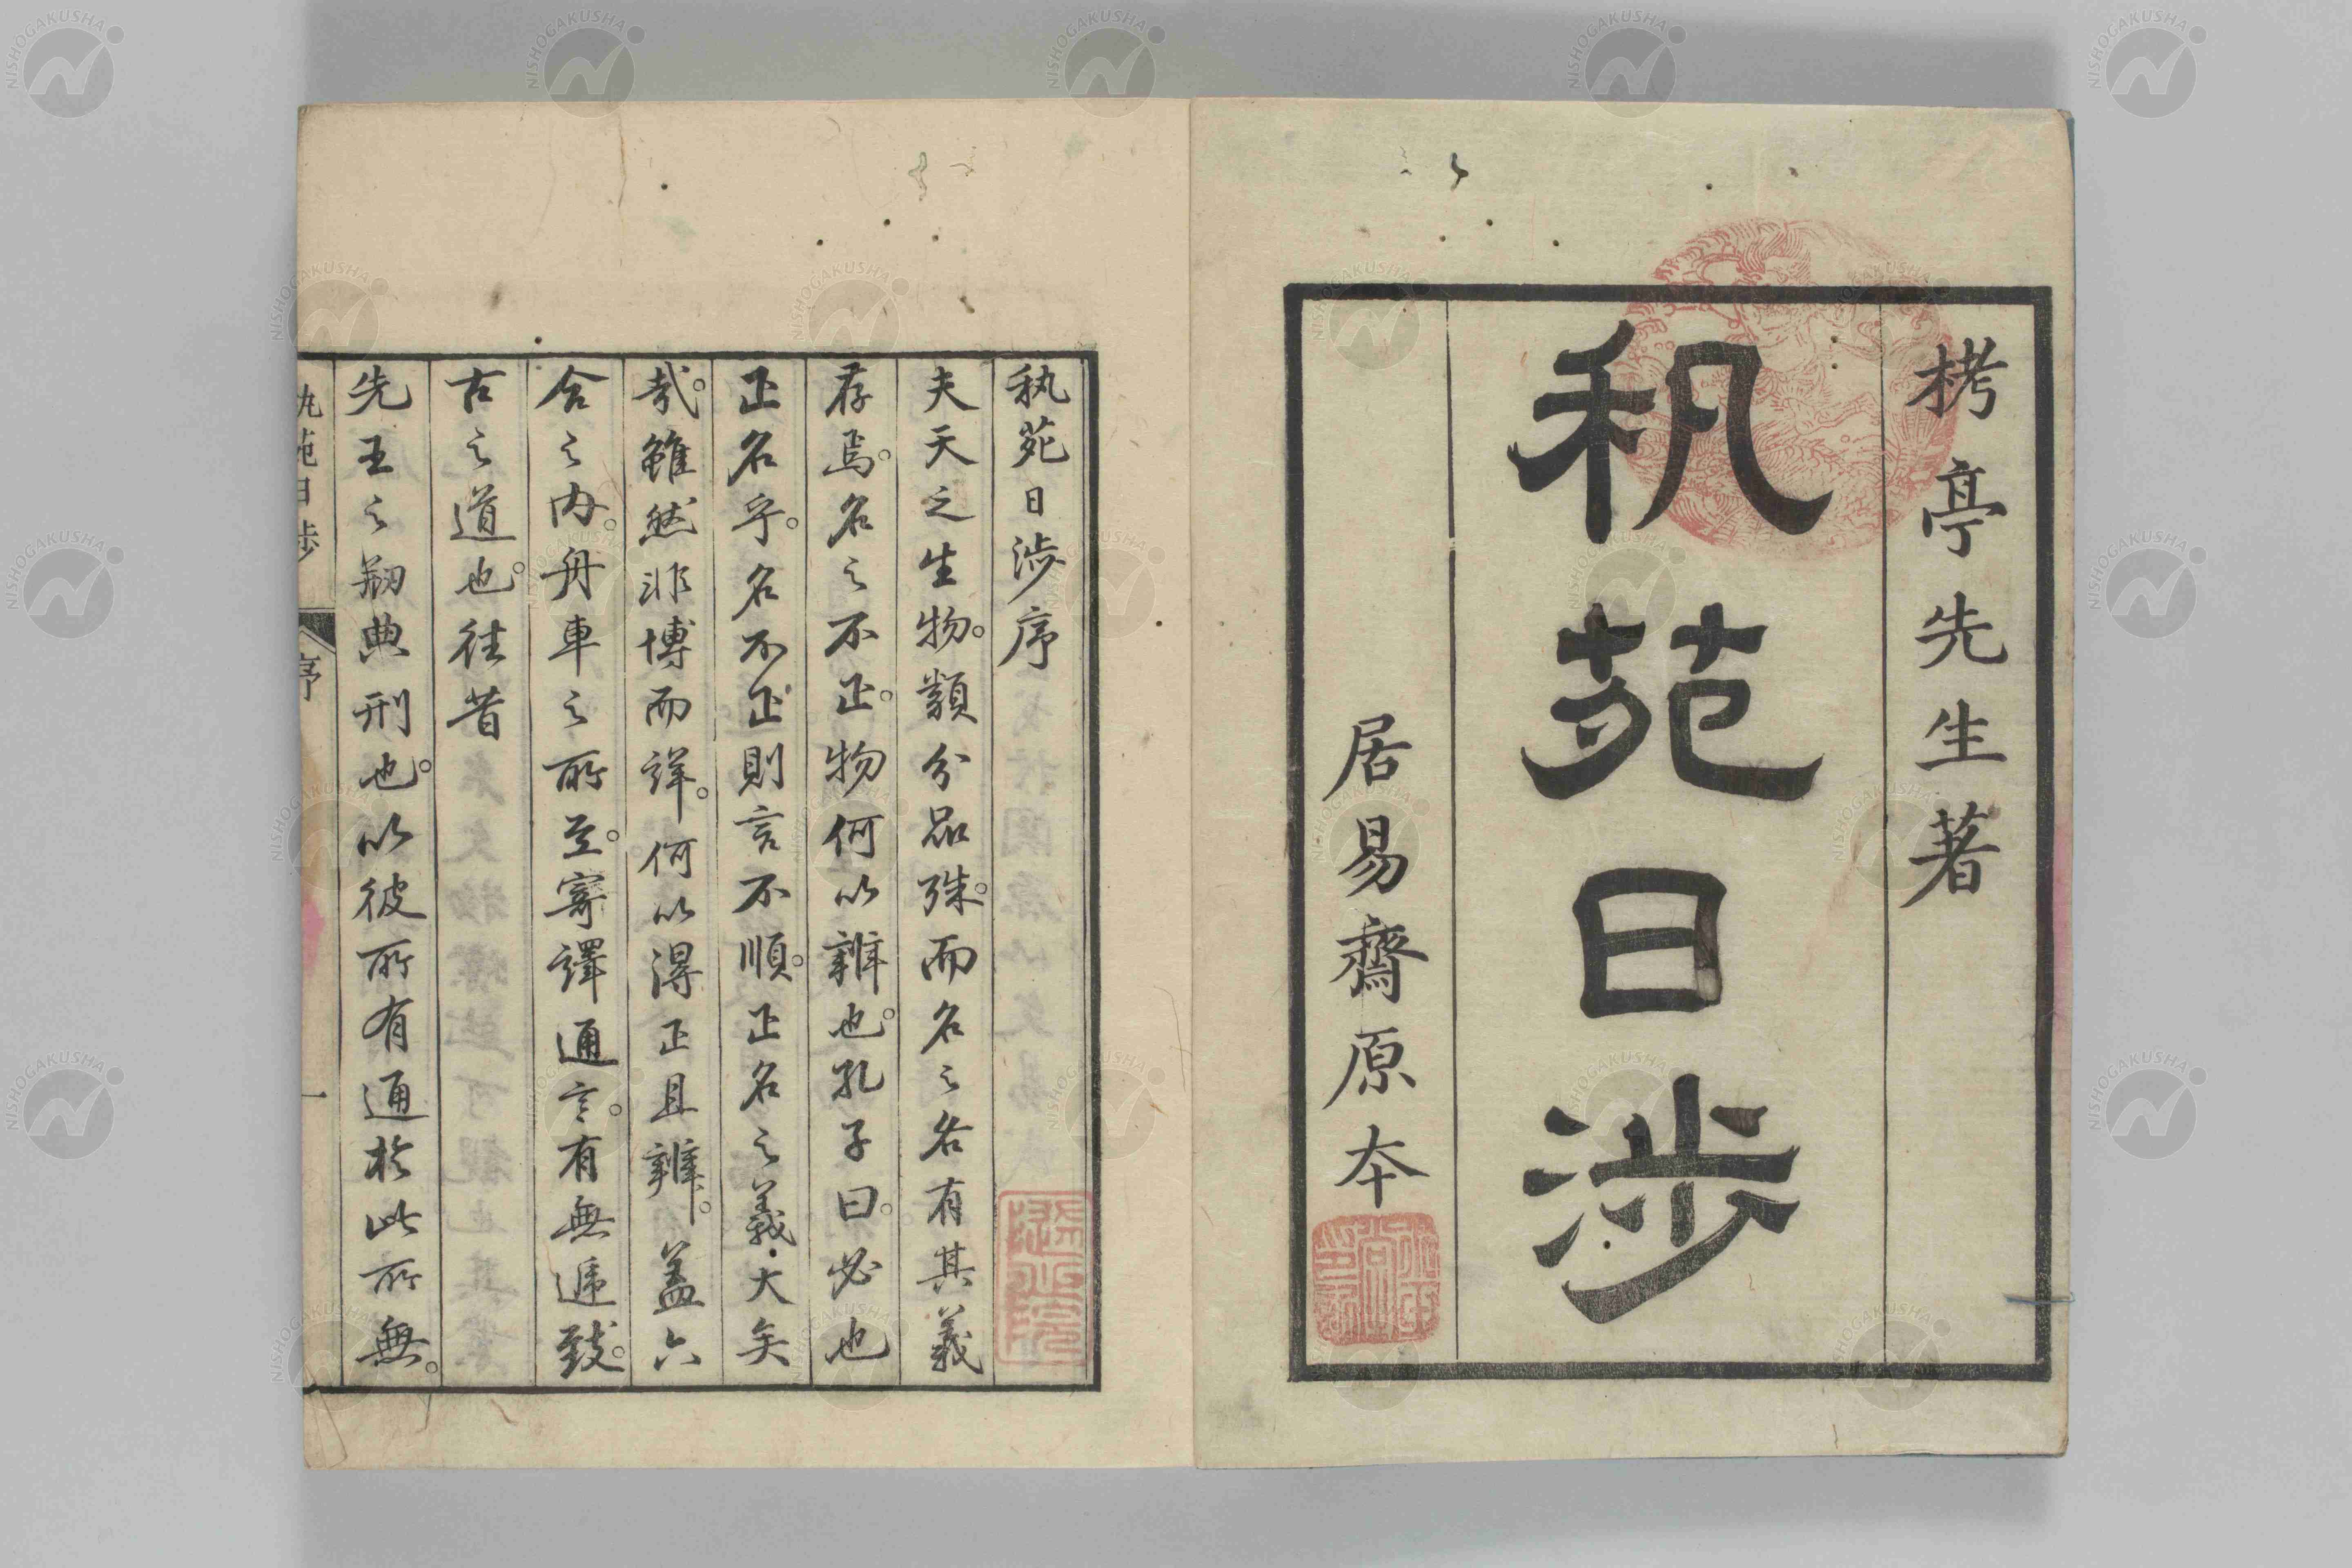 栲亭先生著
秇苑日渉
居易齋原本
秇苑日渉序
夫天之生物。類分品殊。而名之各有其義
存焉。名之不正。物何以辨也。孔子曰。必也
正名乎。名不正則言不順。正名之義大矣
哉。雖然非博而詳。何以得正且辨。蓋六
合之内。舟車之所至。寄譯通言。有無遞致。
古之道也。往昔
先王之剏典刑也。以彼所有通於此所無。
秇苑日渉 序 一
NISHOGAKUSHA